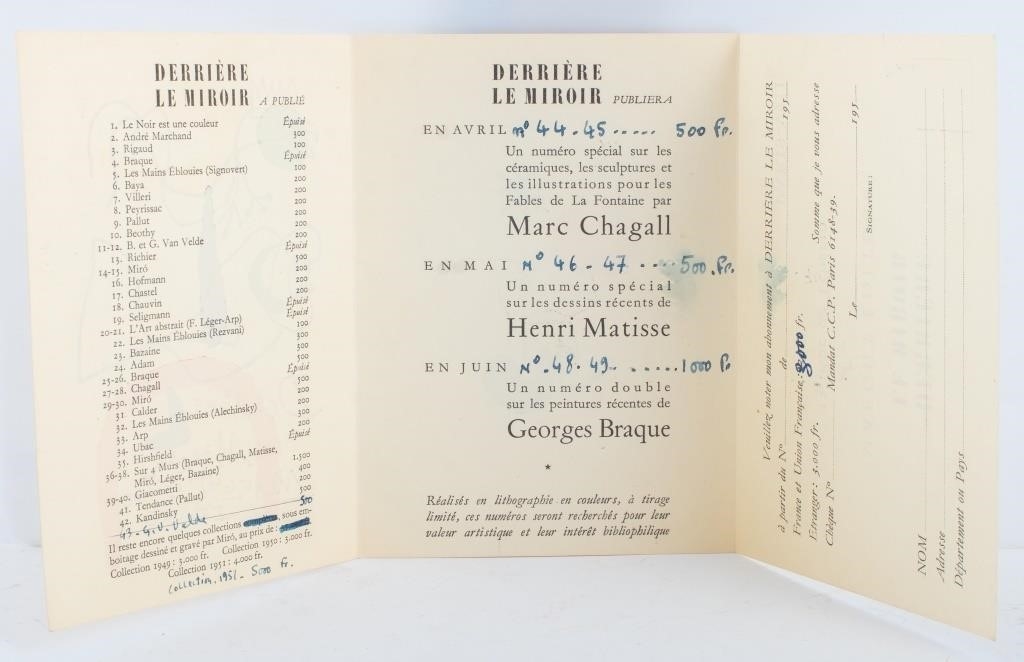 DERRIÈRE
LE MIROIR A PUBLIÉ
1. Le Noir est une couleur Épuisé
2. André Marchand 300
3. Rigaud 100
4. Braque Épuisé
5. Les Mains Éblouies (Signovert) 100
6. Baya 200
7. Villeri 200
8. Peyrissac 200
9. Pallut 200
10. Beothy 200
11-12. B. et G. Van Velde 200
13. Richier Épuisé
14-15. Miró 500
16. Hofmann 200
17. Chastel 200
18. Chauvin 200
19. Seligmann Épuisé
20-21. L'Art abstrait (F. Léger-Arp) Épuisé
22. Les Mains Éblouies (Rezvani) 300
23. Bazaine 300
24. Adam 300
25-26. Braque 500
27-28. Chagall Épuisé
29-30. Miró 500
31. Calder 200
32. Les Mains Éblouies (Alechinsky) 200
33. Arp 300
34. Ubac 200
35. Hirshfield Épuisé
36-38. Sur 4 Murs (Braque, Chagall, Matisse,
Miró, Léger, Bazaine) 1.500
39-40. Giacometti 400
41. Tendance (Pallut) 200
42. Kandinsky 500
43 - G. V. Velde 500
Il reste encore quelques collections sous em-
boitage dessiné et gravé par Miró, au prix de :
Collection 1949 : 3.000 fr. Collection 1950 : 3.000 fr.
Collection 1951 : 4.000 fr.
Collection. 1951 - 5000 fr.
DERRIÈRE
LE MIROIR PUBLIERA
EN AVRIL n° 44-45 ..... 500 fr.
Un numéro spécial sur les
céramiques, les sculptures et
les illustrations pour les
Fables de La Fontaine par
Marc Chagall
EN MAI N° 46-47 .... 500 fr.
Un numéro spécial
sur les dessins récents de
Henri Matisse
EN JUIN N°.48-49. ......1000 fr
Un numéro double
sur les peintures récentes de
Georges Braque
*
Réalisés en lithographie en couleurs, à tirage
limité, ces numéros seront recherchés pour leur
valeur artistique et leur intérêt bibliophilique
Veuillez noter mon abonnement à DERRIERE LE MIROIR
à partir du N° de 195
France et Union Française: fr.
Etranger: 3.000 fr. Somme que je vous adresse
Chèque N° Mandat C.C.P. Paris 6148-39.
Le 195
SIGNATURE:
NOM
Adresse
Département ou Pays